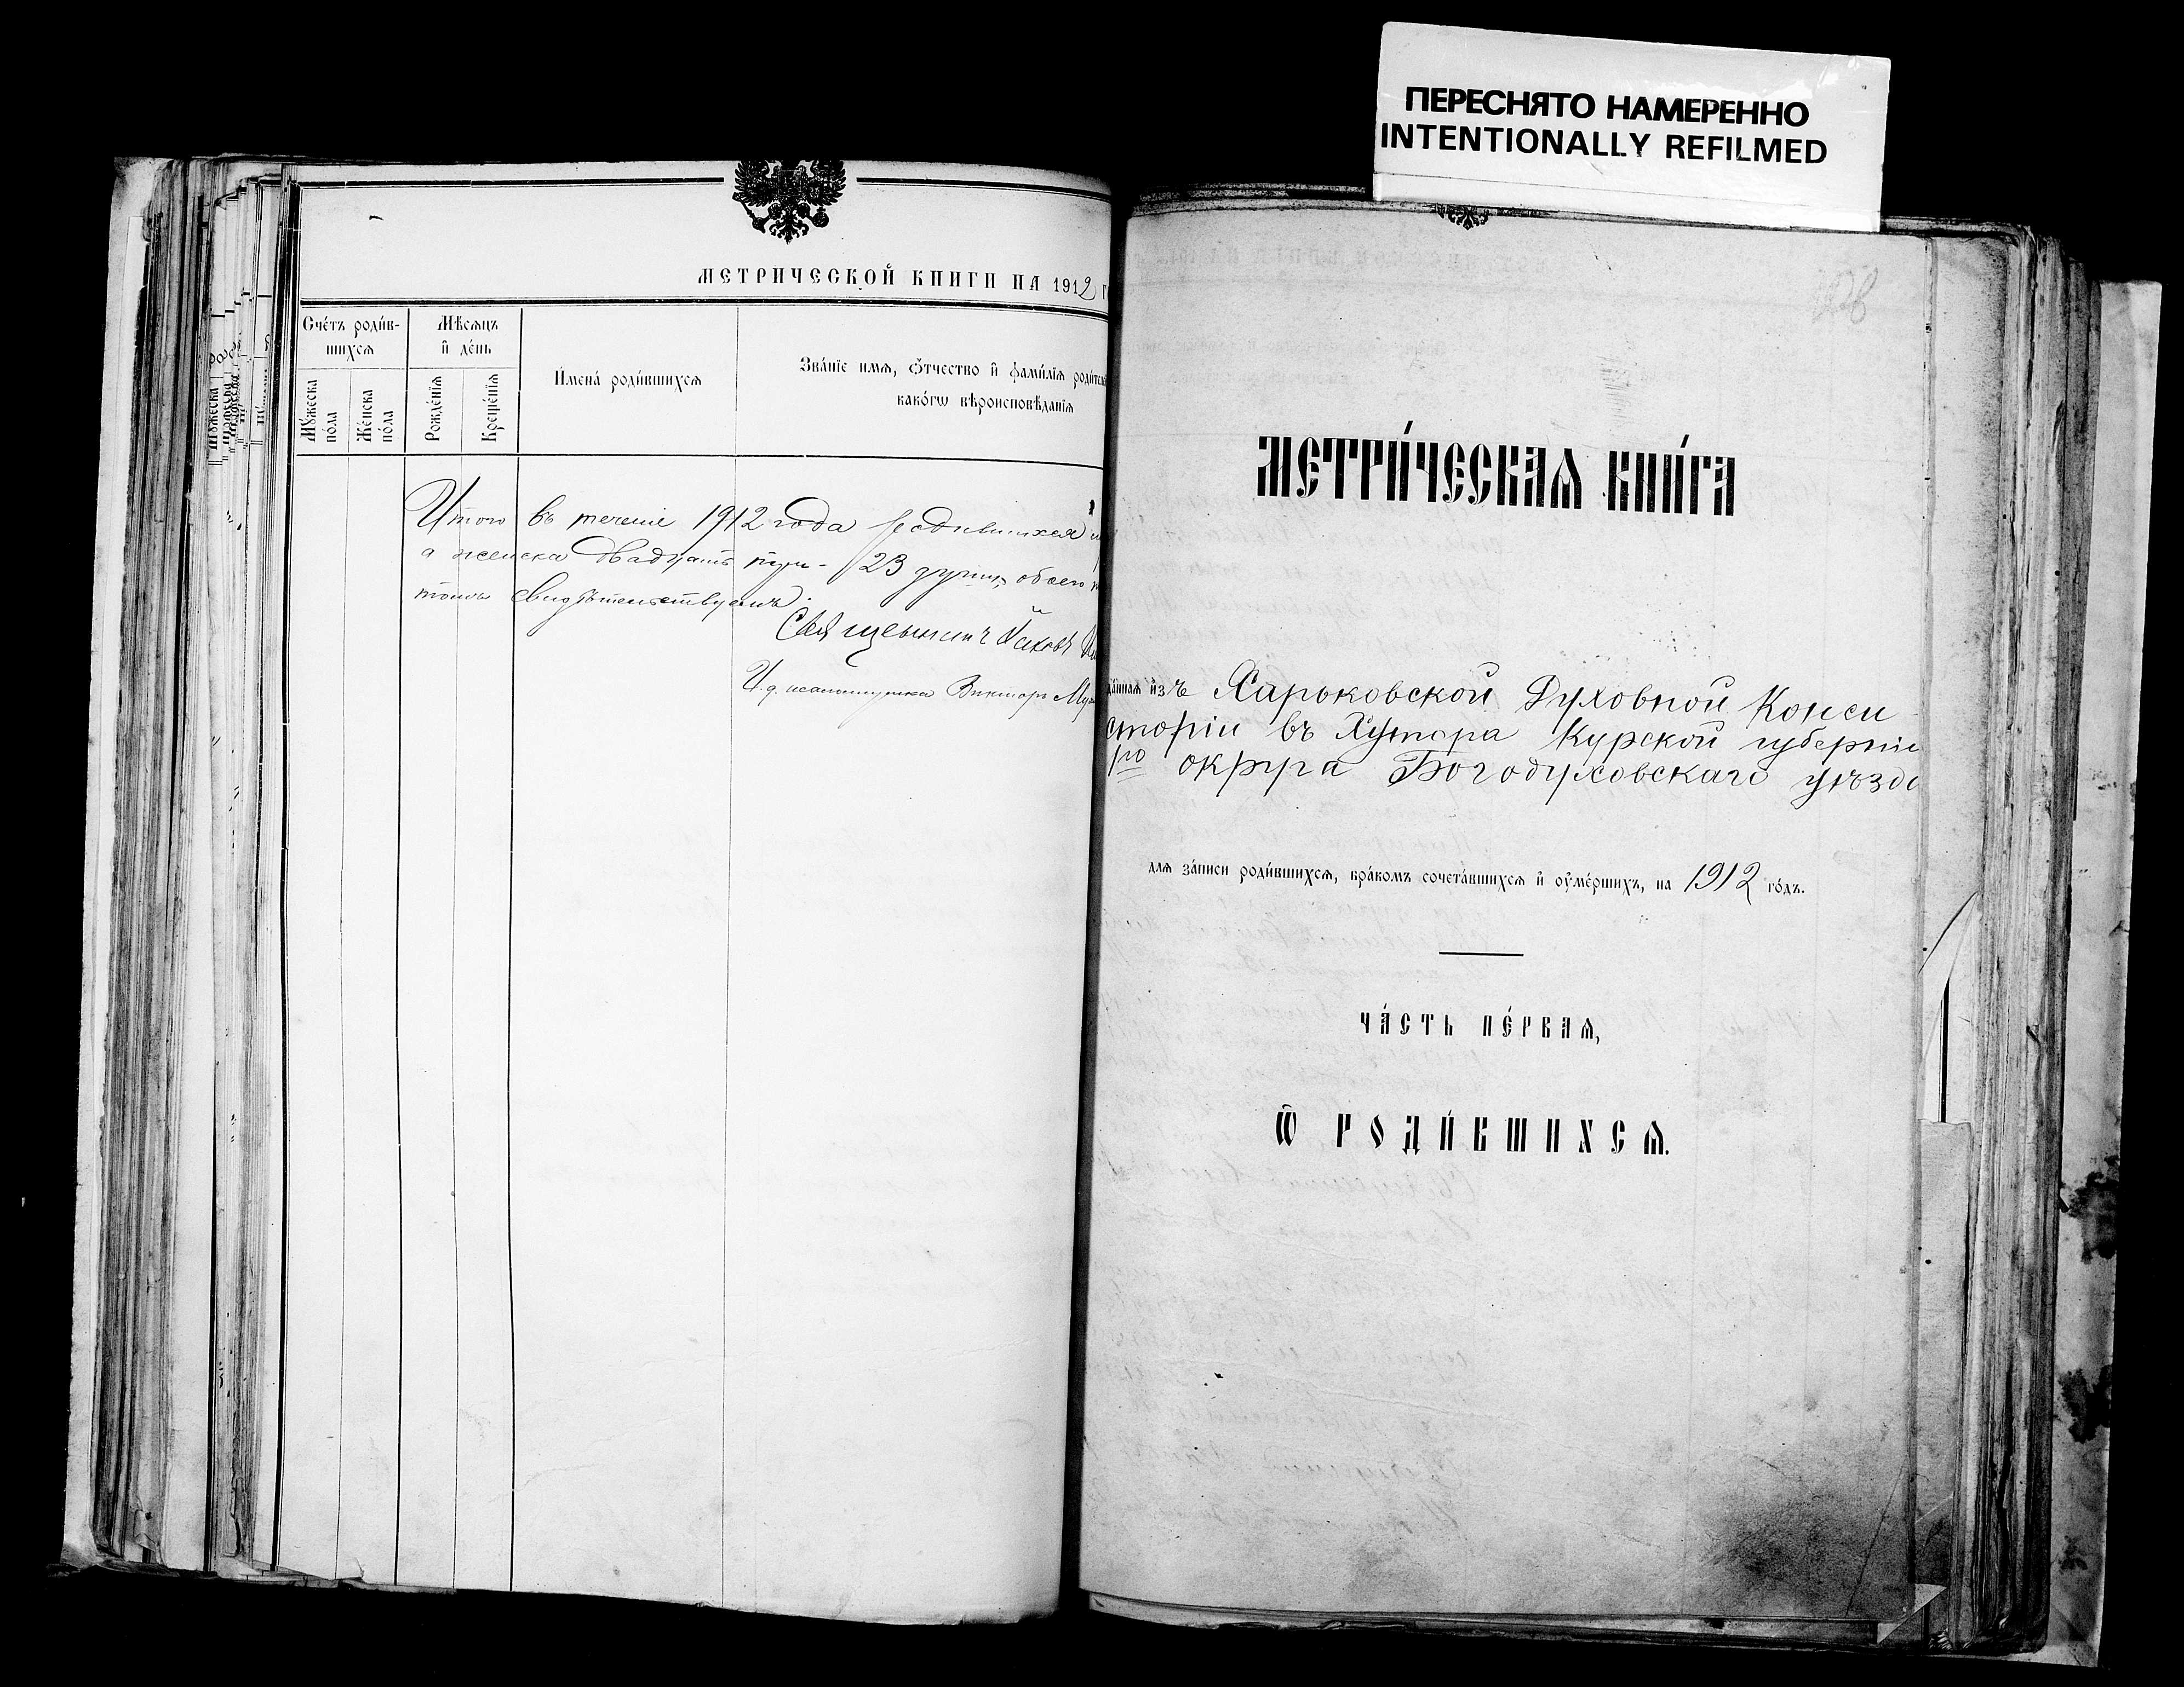 ПЕРЕСНЯТО НАМЕРЕННО
INTENTIONALLY REFILMED
МЕТРИЧЕСКОЙ КНИГИ НА 1912
Сче́тъ роди́в-
шихсѧ
Мѣ́сѧцъ
и҆ де́нь
И҆мена̀ роди́вшихсѧ
Зва́нїе имѧ, ѻ҆́тчество и҆ фамилїѧ
како́гѡ вѣроисповѣ́данїѧ
Мꙋ́жеска по́ла
Же́нска по́ла
Рожде́нїѧ
Креще́нїѧ
Итого въ теченіе 1912 года родившихся
а женска двадцать три - 23 души, обоего
томъ свидѣтельствуемъ.
Священникъ Іаковъ
И. д. псаломщика Викторъ
МЕТРИ́ЧЕСКАѦ КНИ́ГА
да́нная и҆зъ Харьковской Духовной Конси
сторіи въ Хутора Курской губерніи
го округа Богодуховскаго уѣзда
для за́писи роди́вшихсѧ, бра́комъ сочета́вшихсѧ и҆ ᲂу҆ме́ршихъ, на 1912 го́дъ.
ЧА́СТЬ ПЕ́РВАѦ,
Ѡ҆ РОДИ́ВШИХСѦ.